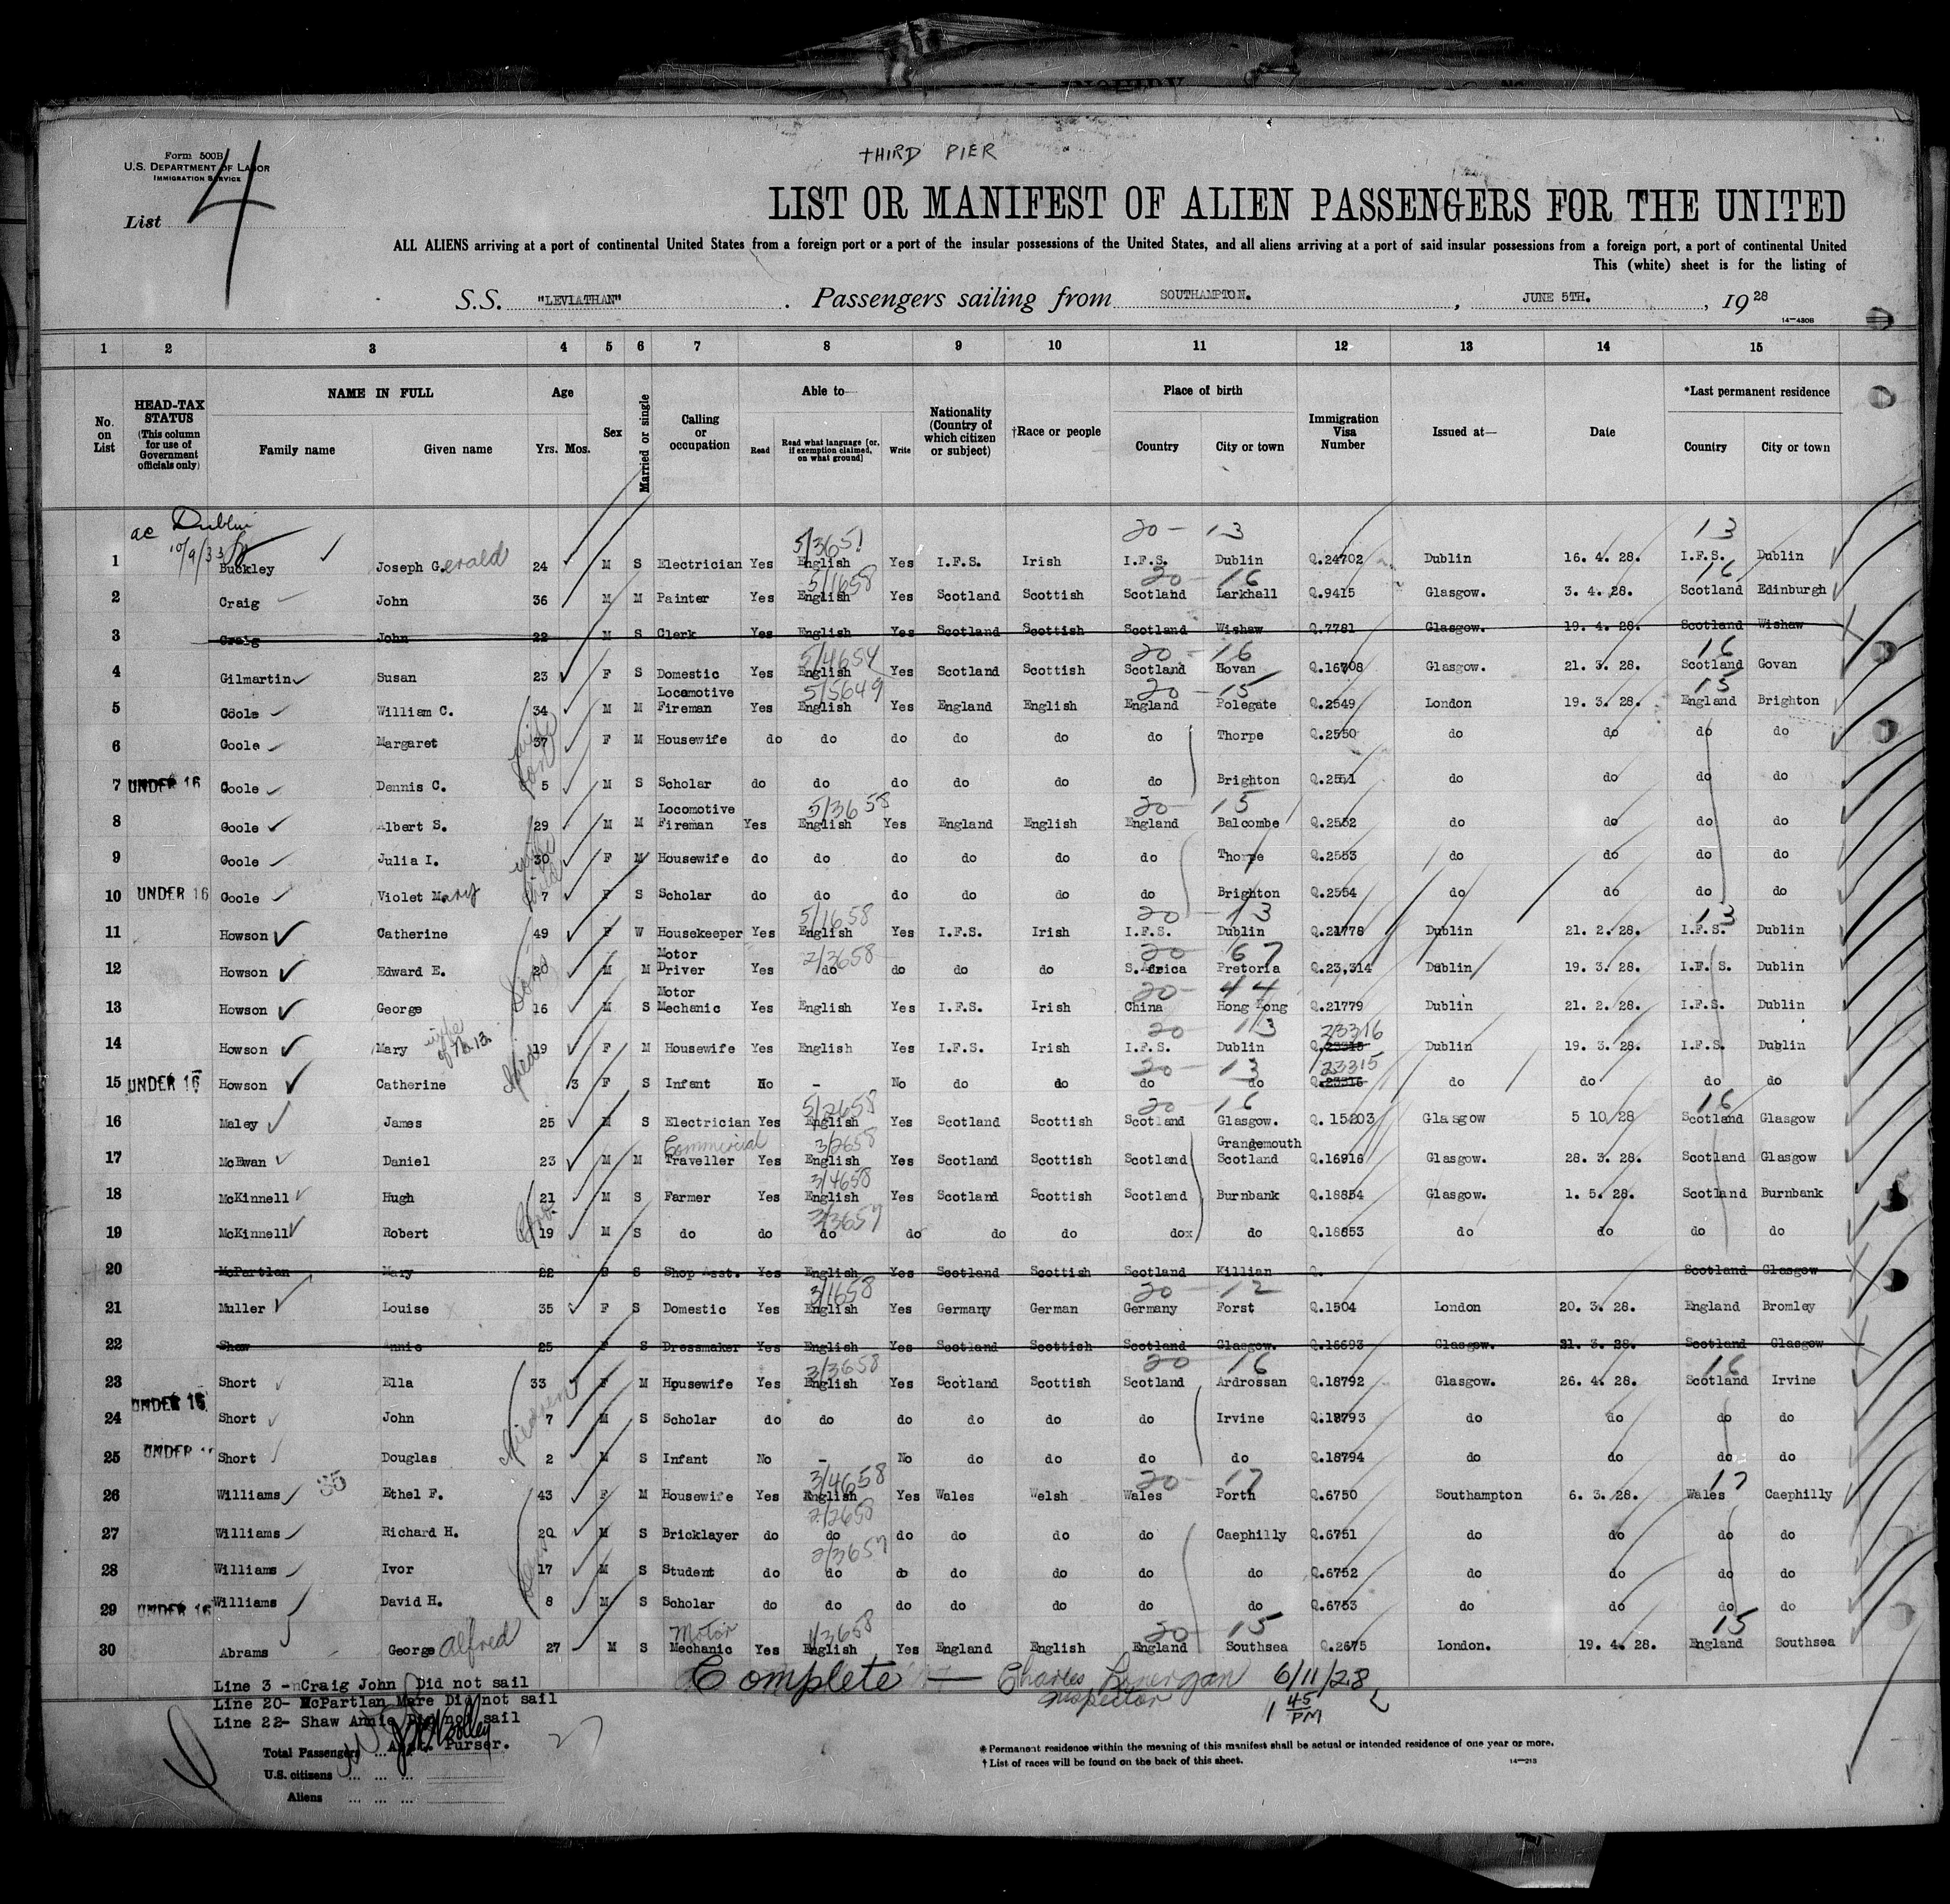 THIRD PIER
Form 500B
U.S. DEPARTMENT OF LABOR
IMMIGRATION SERVICE
List 4
LIST OR MANIFEST OF ALIEN PASSENGERS FOR THE UNITED
ALL ALIENS arriving at a port of continental United States from a foreign port or a port of the insular possessions of the United States, and all aliens arriving at a port of said insular possessions from a foreign port, a port of continental United
This (white) sheet is for the listing of
S.S. "LEVIATHAN" . Passengers sailing from SOUTHAMPTON. , JUNE 5TH. , 1928
14—430B
1 2 3 4 5 6 7 8 9 10 11 12 13 14 15
No. on List
HEAD-TAX STATUS (This column for use of Government officials only)
NAME IN FULL
Family name Given name
Age
Yrs. Mos.
Sex
Married or single
Calling or occupation
Able to—
Read
Read what language [or, if exemption claimed, on what ground]
Write
Nationality (Country of which citizen or subject)
†Race or people
Place of birth
Country City or town
Immigration Visa Number
Issued at—
Date
*Last permanent residence
Country City or town
Dublin
10/9/33
5/3651 20 - 13 13
1 Buckley Joseph Gerald 24 M S Electrician Yes English Yes I.F.S. Irish I.F.S. Dublin Q.24702 Dublin 16. 4. 28. I.F.S. Dublin
5/1658 20 - 16 16
2 Craig John 36 M M Painter Yes English Yes Scotland Scottish Scotland Larkhall Q.9415 Glasgow. 3. 4. 28. Scotland Edinburgh
3 Craig John 22 M S Clerk Yes English Yes Scotland Scottish Scotland Wishaw Q.7781 Glasgow. 19. 4. 28. Scotland Wishaw
5/4654 20 - 16 16
4 Gilmartin Susan 23 F S Domestic Yes English Yes Scotland Scottish Scotland Hovan Q.16708 Glasgow. 21. 3. 28. Scotland Govan
5/5649 20 - 15 15
5 Goole William C. 34 M M Locomotive Fireman Yes English Yes England English England Polegate Q.2549 London 19. 3. 28. England Brighton
6 Goole Margaret wife 37 F M Housewife do do do do do do Thorpe Q.2550 do do do do
7 UNDER 16 Goole Dennis C. son 5 M S Scholar do do do do do do Brighton Q.2551 do do do do
5/3658 20 - 15
8 Goole Albert S. 29 M M Locomotive Fireman Yes English Yes England English England Balcombe Q.2552 do do do do
9 Goole Julia I. wife 30 F M Housewife do do do do do do Thorpe Q.2553 do do do do
10 UNDER 16 Goole Violet Mary child 7 F S Scholar do do do do do do Brighton Q.2554 do do do do
5/1658 20 - 13 13
11 Howson Catherine 49 F W Housekeeper Yes English Yes I.F.S. Irish I.F.S. Dublin Q.21778 Dublin 21. 2. 28. I.F.S. Dublin
2/3658 20 - 67
12 Howson Edward E. sons 20 M M Motor Driver Yes do do do do S. Africa Pretoria Q.23,314 Dublin 19. 3. 28. I.F.S. Dublin
20 - 44
13 Howson George 16 M S Motor Mechanic Yes English Yes I.F.S. Irish China Hong Kong Q.21779 Dublin 21. 2. 28. I.F.S. Dublin
20 13 23316
14 Howson Mary wife of No. 12. 19 F M Housewife Yes English Yes I.F.S. Irish I.F.S. Dublin Q.23315 Dublin 19. 3. 28. I.F.S. Dublin
20 - 13 23315
15 UNDER 16 Howson Catherine child 3 F S Infant No - No do do do do Q.23316 do do do do
5/2658 20 - 16 16
16 Maley James 25 M S Electrician Yes English Yes Scotland Scottish Scotland Glasgow. Q. 15203 Glasgow 5 10 28 Scotland Glasgow
3/2658
17 McEwan Daniel 23 M M Commercial Traveller Yes English Yes Scotland Scottish Scotland Grangemouth Scotland Q.16916 Glasgow. 28. 3. 28. Scotland Glasgow
3/4658
18 McKinnell Hugh 21 M S Farmer Yes English Yes Scotland Scottish Scotland Burnbank Q.18854 Glasgow. 1. 5. 28. Scotland Burnbank
3/3657
19 McKinnell Robert Bro. 19 M S do do do do do do dox do Q.18853 do do do do
20 McPartlan Mary 22 S Shop Asst. Yes English Yes Scotland Scottish Scotland Killian Q. Scotland Glasgow
3/1658 20 - 12
21 Muller Louise 35 F S Domestic Yes English Yes Germany German Germany Forst Q.1504 London 20. 3. 28. England Bromley
22 Shaw Annie 25 F S Dressmaker Yes English Yes Scotland Scottish Scotland Glasgow. Q.16693 Glasgow. 21. 3. 28. Scotland Glasgow
3/3658 20 - 16 16
23 Short Ella 33 F M Housewife Yes English Yes Scotland Scottish Scotland Ardrossan Q.18792 Glasgow. 26. 4. 28. Scotland Irvine
UNDER 16
24 Short John children 7 M S Scholar do do do do do do Irvine Q.18793 do do do do
25 UNDER Short Douglas 2 M S Infant No - No do do do do Q.18794 do do do do
3/4658 20 - 17 17
26 Williams 35 Ethel F. 43 F M Housewife Yes English Yes Wales Welsh Wales Porth Q.6750 Southampton 6. 3. 28. Wales Caephilly
2/2658
27 Williams Richard H. 20 M S Bricklayer do do do do do do Caephilly Q.6751 do do do do
2/3657
28 Williams Ivor sons 17 M S Student do do do do do do do Q.6752 do do do do
29 UNDER 16 Williams David H. 8 M S Scholar do do do do do do do Q.6753 do do do do
1/3658 20 - 15 15
30 Abrams George Alfred 27 M S Motor Mechanic Yes English Yes England English England Southsea Q.2675 London. 19. 4. 28. England Southsea
Complete — Charles Lonergan 6/11/28
Inspector 1 45 PM
Line 3 - Craig John Did not sail
Line 20- McPartlan Mare Did not sail
Line 22- Shaw Annie Did not sail
Asst. Purser.
Total Passengers ... ...
U.S. citizens ... ... ...
Aliens ... ... ...
* Permanent residence within the meaning of this manifest shall be actual or intended residence of one year or more.
† List of races will be found on the back of this sheet.
14—213